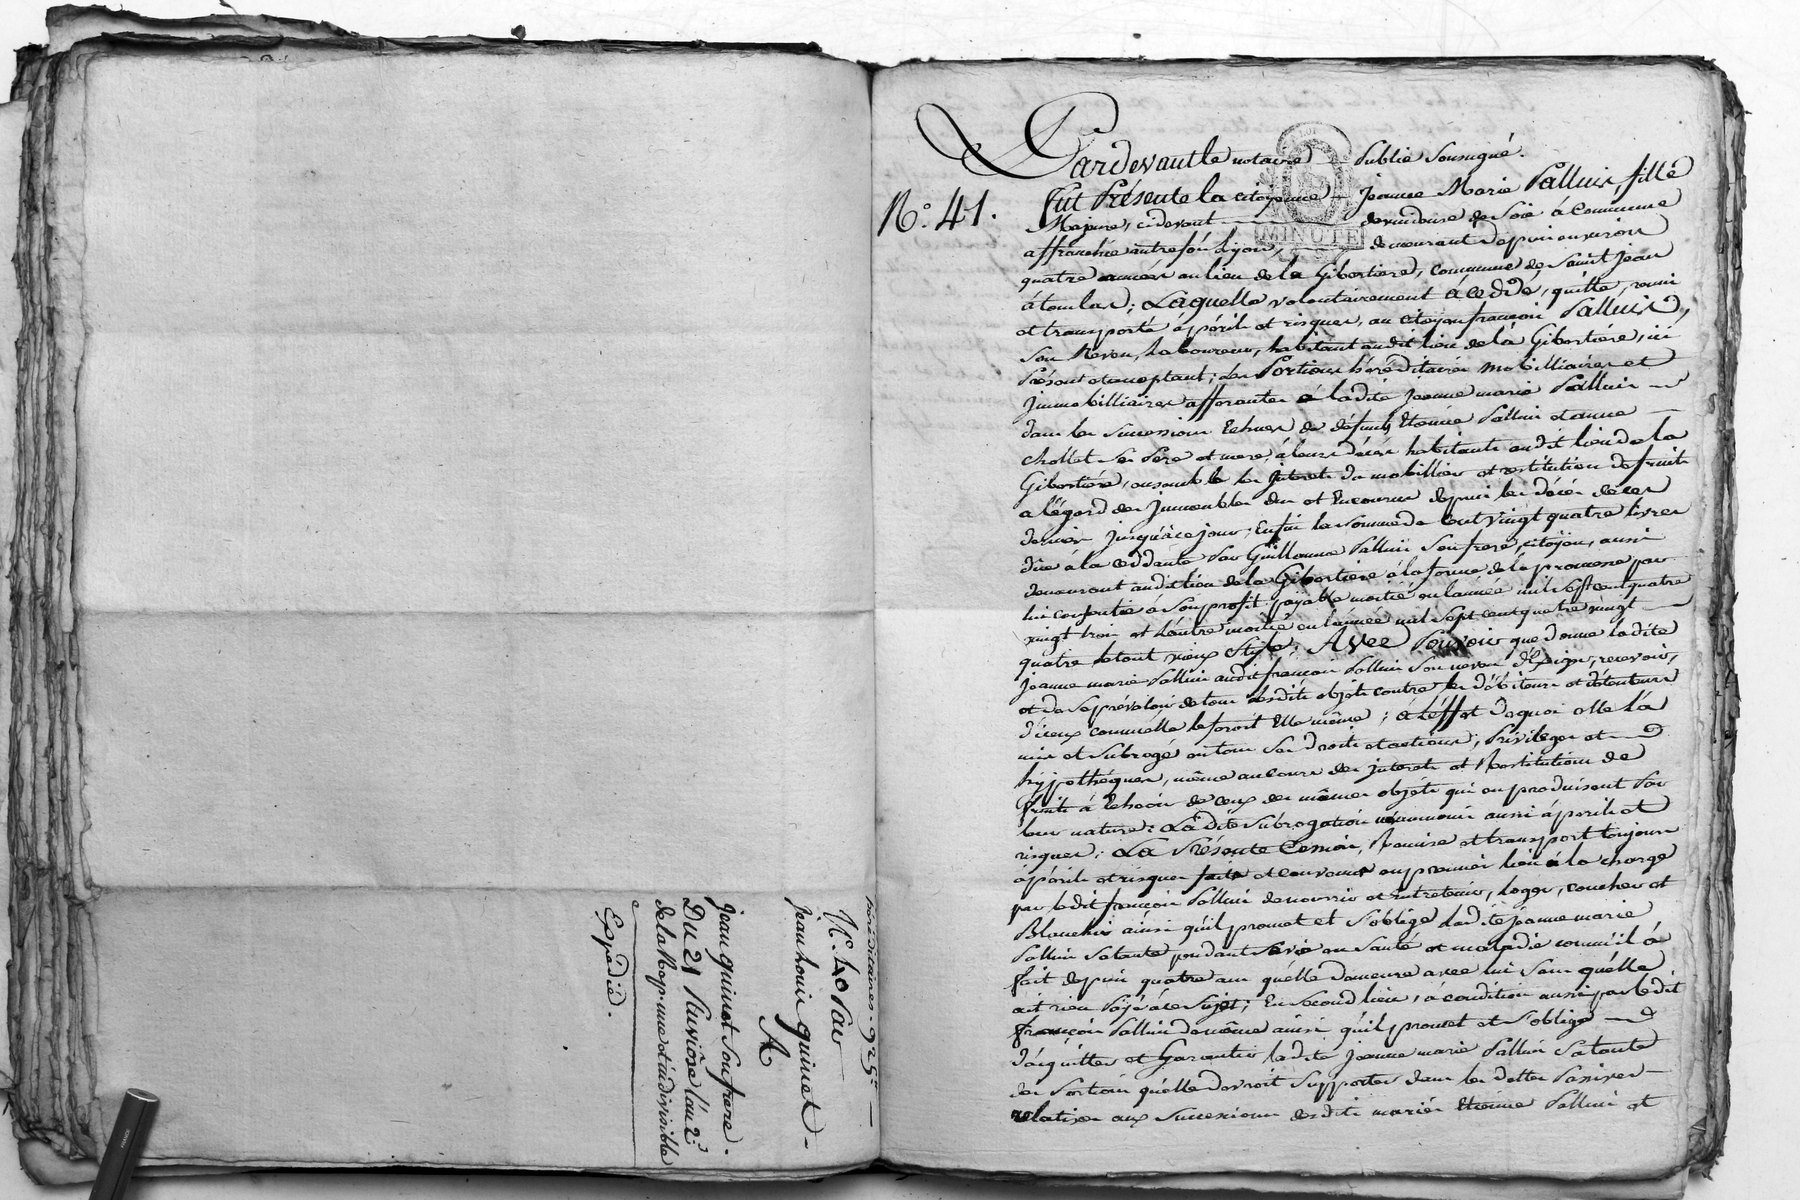 héréditaires. 925.#
N.° 40 Par
Jean Louis quinet
A
Jean quinet son frere.
Du 21 Pluviôse l'an 2.e
de la Rep. une et indivisible
Expédié.
N.° 41.
Pardevant le notaire Public Soussigné.
LA LOI
MINUTE
Fut Présente la citoyenne Jeanne Marie Palluis, fille
Majeure, cidevant devideuse de Soie à Commune
affranchie autrefois Lyon, demeurant depuis environ
quatre années au lieu de la Gibertiere, commune de Saint Jean
à toulas; Laquelle volontairement à cédé, quitte, remis
et transporté à périls et risques, au citoyen françois Palluis
Son Neveu, Laboureur, habitant audit lieu de la Gibertiére, ici
Présent et acceptant; les Portions héréditaires mobilliaires et
Immobilliaires afferantes à ladite Jeanne marie Palluis
dans les Successions Echues de défunts Etienne Palluis et anne
Chollet Ses Pere et mere, à leurs décès habitants audit lieu de la
Gibertiére, ensemble les Interets du mobillier et restitution de fruits
a l'égard des Immeubles dus et Encourus depuis les décès de ces
derniers jusqu'à ce jour; Enfin la Somme de Cent vingt quatre livres
dûe à la cédante Par Guillaume Palluis Son frere, citoÿen, aussi
demeurant audit lieu de la Gibertiere à la forme de la promesse par
lui consentie a Son profit payable moitié en l'année mil Sept cent quatre
vingt trois et l'autre moitié en l'année mil Sept cent quatre vingt
quatre le tout vieux Style; Avec Pouvoir que donne ladite
Jeanne marie Palluis audit françois Palluis Son neveu d'Exiger, recevoir,
et de Se prévaloir de tous lesdits objets contre les débiteurs et détenteurs
d'iceux comme elle le feroit Elle même; à l'éffet de quoi elle l'à
mis et Subrogé en tous Ses droits et actions, Privileges et
hÿpothéques, même au cours des Interets et Restitutions de
fruits à Echeoir de ceux des mêmes objets qui en produisent Par
leur nature; La dite Subrogation néanmoins aussi à périls et
risques; La Présente Cession, Remise et transport toujours
à périls et risques faits et convenus en premier lieu à la charge
par ledit françois Palluis de nourrir et entretenir, loger, coucher et
Blanchir ainsi qu'il promet et S'oblige ladite Jeanne marie
Palluis Sa tante pendant Sa vie en Santé et maladie comme il à
fait depuis quatre ans qu'elle demeure avec lui Sans qu'elle
ait rien Payé à ce Sujet; En Second lieu, à condition aussi par ledit
françois Palluis de même ainsi qu'il promet et S'oblige
d'acquitter et Garantir ladite Jeanne marie Palluis Sa tante
des Portions qu'elle devroit Supporter dans les dettes Passives
relatives aux Successions desdits mariés Etienne Palluis et